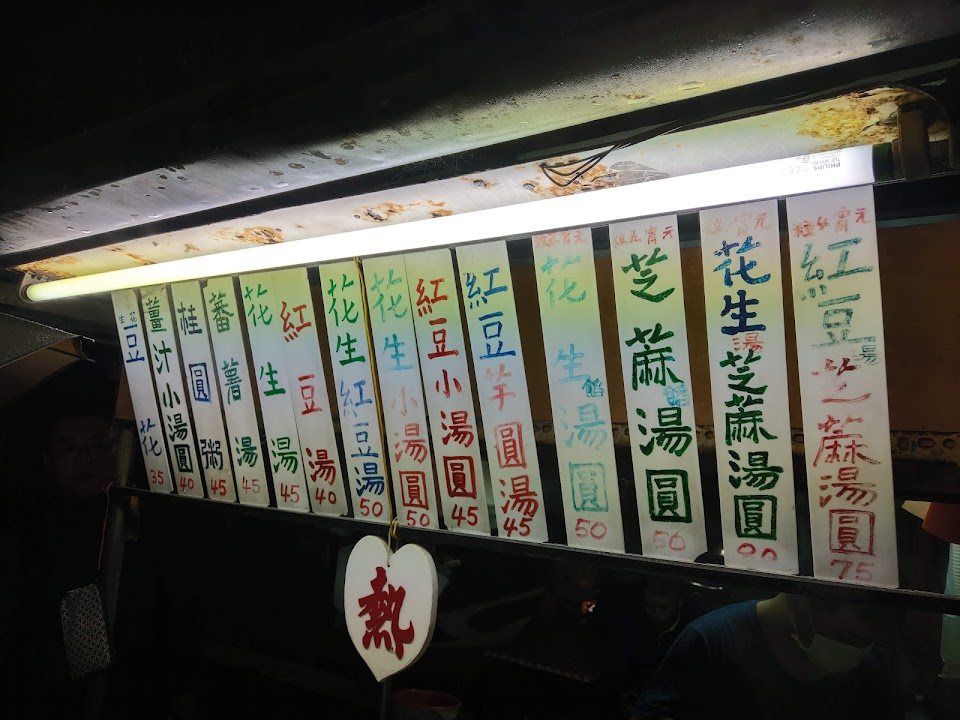 花生
豆花
35
薑汁小湯圓
40
桂圓粥
45
蕃薯湯
45
花生湯
45
紅豆湯
40
花生紅豆湯
50
花生小湯圓
50
紅豆小湯圓
45
紅豆芋圓湯
45
花生湯圓
餡
50
粒五宵元
芝麻湯圓
餡
花生芝麻湯圓
湯
宵元
紅豆芝麻湯圓
湯
75
PHILIPS
熱